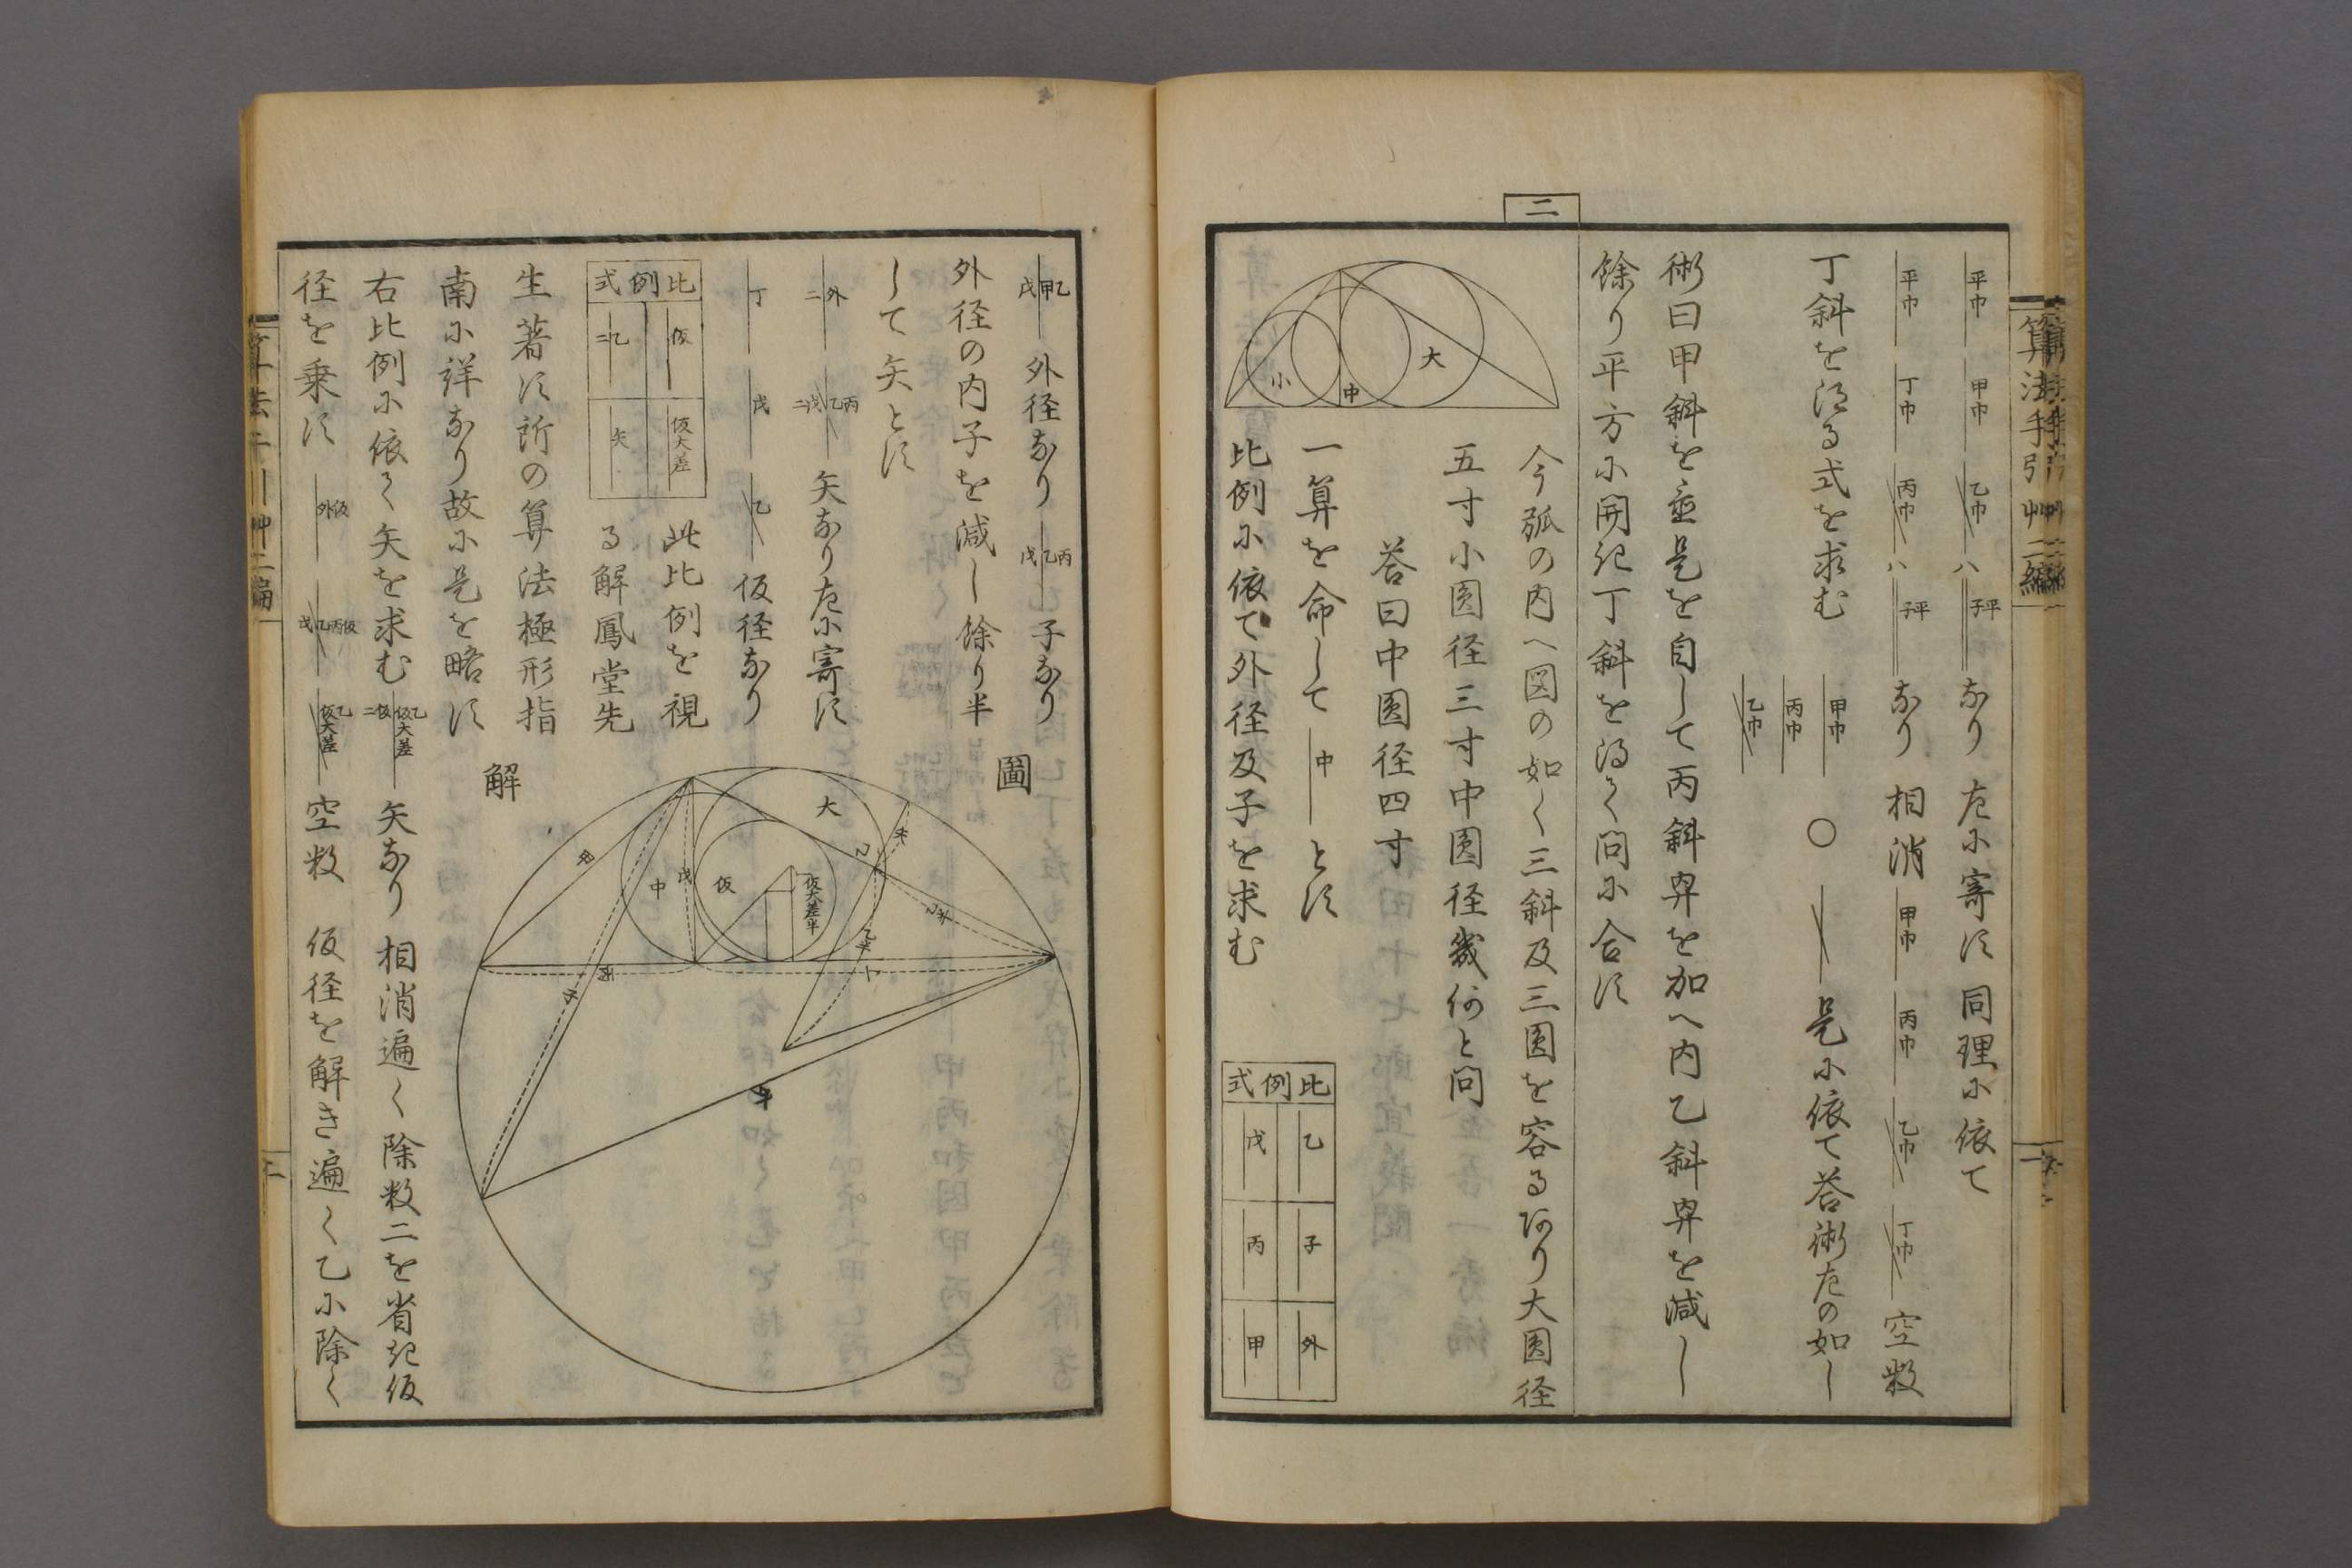 算法手引艸二編
平巾 甲巾 乙巾 八 平子 なり 左に寄す 同理に依て
平巾 丁巾 丙巾 八 平子 なり 相消 甲巾 丙巾 乙巾 丁巾 空数
丁斜を得る式を求む 甲巾 丙巾 乙巾 〇 是に依て答術左の如し
術曰甲斜を自し是を自して丙斜冪を加へ内乙斜冪を減し
餘り平方に開き丁斜を得て問に合す
二
大
中
小
今弧の内へ図の如く三斜及三圓を容るあり大圓径
五寸小圓径三寸中圓径幾何と問
答曰中圓径四寸
一算を命して 中 とす
比例に依て外径及子を求む
比例式
乙 子 外
戊 丙 甲
甲乙 戊 外径なり 丙乙 戊 子なり
外径の内子を減し餘り半
して矢とす
外 二 丙乙 戊二 矢なり左に寄す
丁 戊 乙 仮径なり
比例式
仮 仮大差
乙二 矢
此比例を視
る解鳳堂先
生著す所の算法極形指
南に詳なり故に是を略す
右比例に依て矢を求む 乙仮大差 仮二 矢なり 相消遍く除数二を省き仮
径を乗す 仮外 仮丙乙 戊 乙仮大差 空数 仮径を解き遍く乙に除く
圖
解
大
中
仮
戊
仮大差半